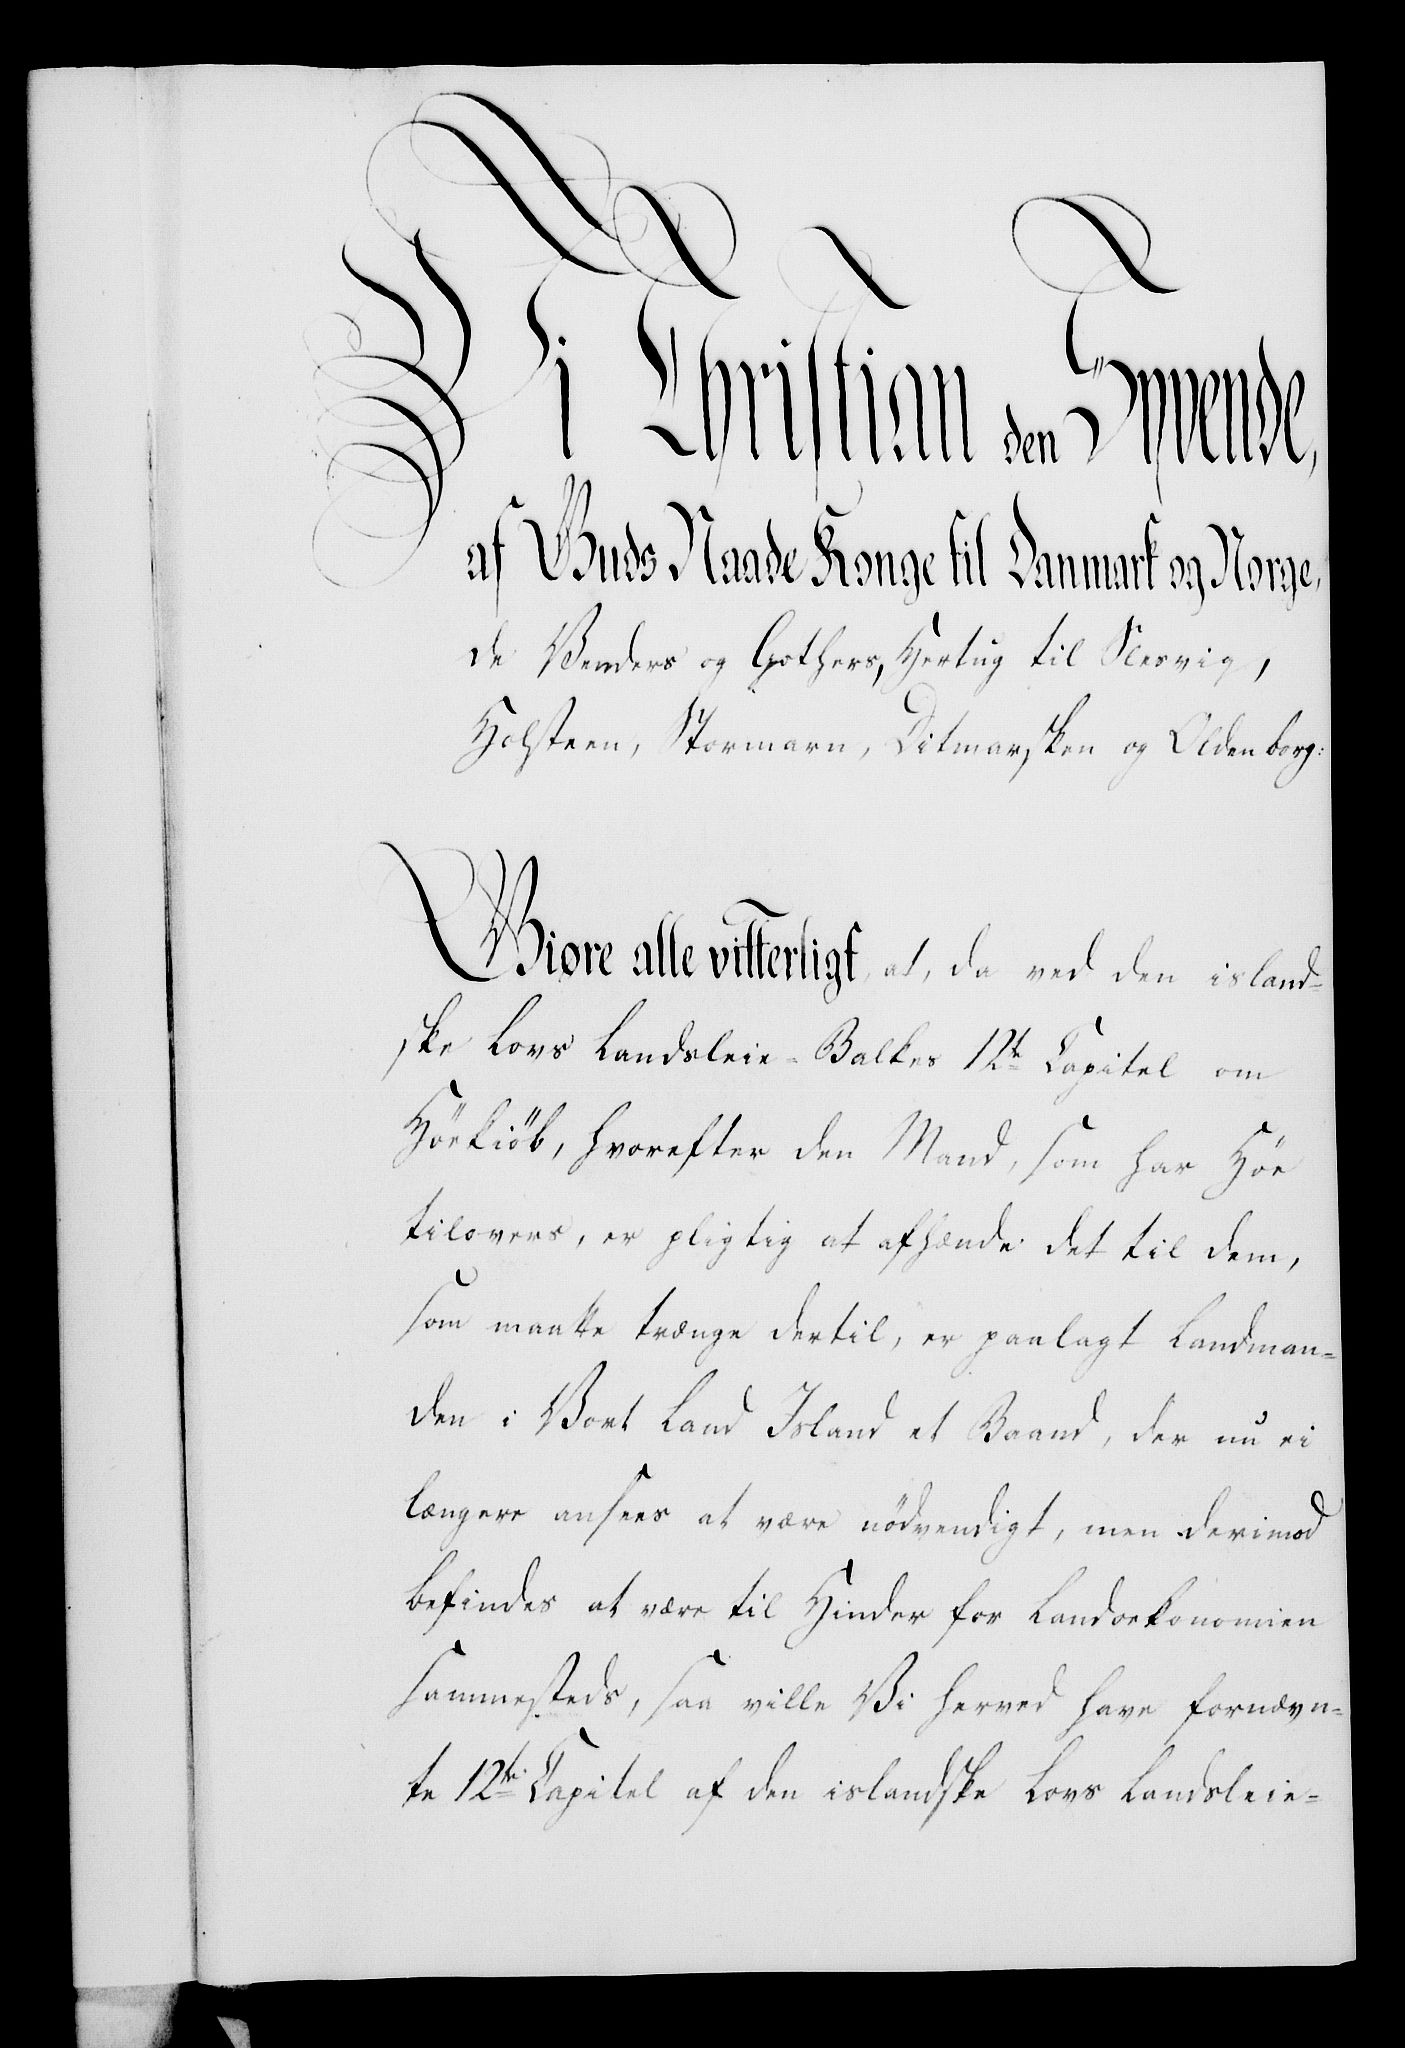 Vi Christian den Syvende,
af Guds Naade Konge til Danmark og Norge,
de Venders og Gothers, Hertug til Slesvig,
Holsteen, Stormarn, Ditmarsken og Oldenborg:
Giøre alle vitterligt, at, da ved den island-
ske Lovs Landsleie-Balkes 12te Capitel om
Höekiöb, hvorefter den Mand, som har Höe
tilovers, er pligtig at afhænde det til dem,
som maatte trænge dertil, er paalagt Landman-
den i Vort Land Island et Baand, der nu ei
længere ansees at være nödvendigt, men derimod
befindes at være til Hinder for Landoekonomien
sammesteds, saa ville Vi herved have fornævn-
te 12te Capitel af den islandske Lovs Landsleie-